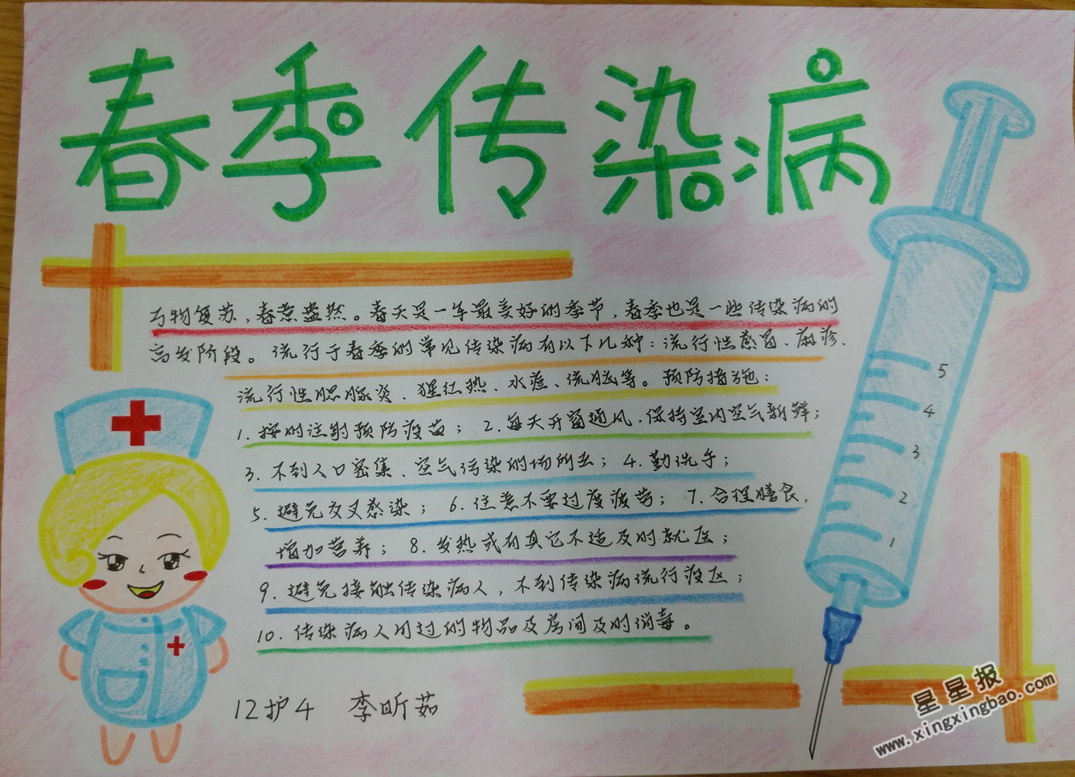 春季传染病
万物复苏，春意盎然。春天是一年最美好的季节，春季也是一些传染病的
高发阶段。流行于春季的常见传染病有以下几种：流行性感冒、麻疹、
流行性腮腺炎、猩红热、水痘、流脑等。预防措施：
1. 按时注射预防疫苗； 2. 每天开窗通风，保持室内空气新鲜；
3. 不到人口密集、空气污染的场所去； 4. 勤洗手；
5. 避免交叉感染； 6. 注意不要过度疲劳； 7. 合理膳食，
增加营养； 8. 发热或有其它不适及时就医；
9. 避免接触传染病人，不到传染病流行疫区；
10. 传染病人用过的物品及房间及时消毒。
12护4 李昕茹
5
4
3
2
1
星星报
www.xingxingbao.com